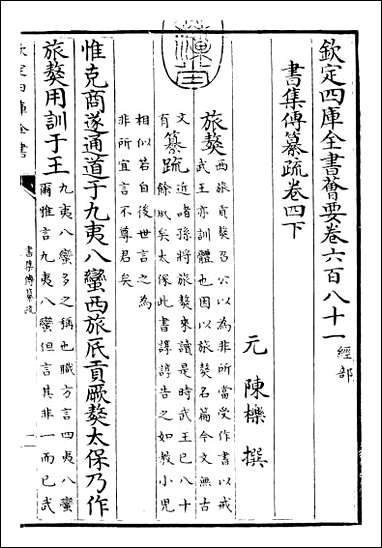 欽定四庫全書薈要卷六百八十一 經部
書集傳纂疏卷四下
元 陳櫟 撰
旅獒 西旅貢獒召公以為非所當受作書以戒
武王亦訓體也因以旅獒名篇今文無古
文有 纂疏 近諸孫將旅獒來讀是時武王已八十
餘歲矣太保此書諄諄告之如教小兒
相似若自後世言之為
非所宜言不尊君矣
惟克商遂通道于九夷八蠻西旅底貢厥獒太保乃作
旅獒用訓于王 九夷八蠻多之稱也職方言四夷八蠻
爾雅言九夷八蠻但言其非一而已武
欽定四庫全書
書集傳纂疏
一